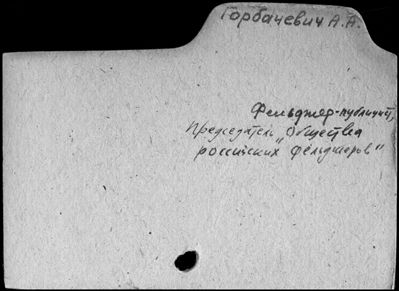 Горбачевич А.А.
Фельдшер-публицист,
Председатель „Общества
российских фельдшеров"